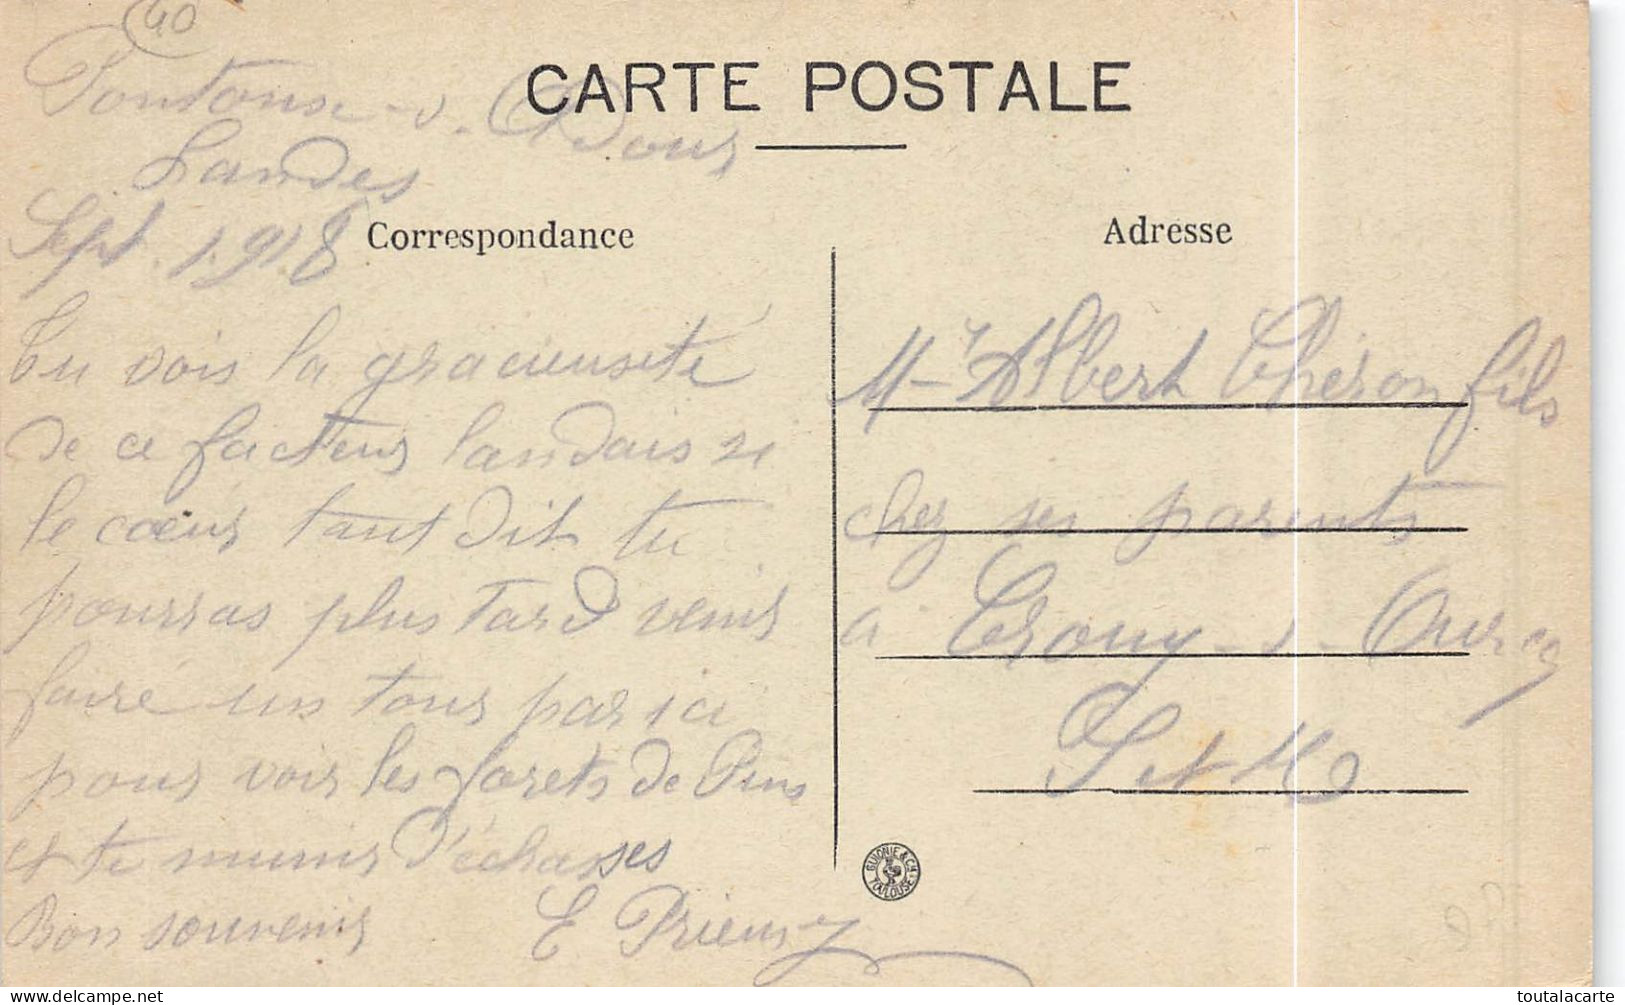 40
CARTE POSTALE
Pontonx-s-Adour
Landes
Sept. 1918
Correspondance
Tu vois la gracieuseté
de ce facteur landais si
le cœur tant dit tu
pourras plus tard venir
faire un tour par ici
pour voir les forets de Pins
et te munir d'échasses
Bon souvenir E Prieur
Adresse
Mr Albert Théron fils
chez ses parents
à Crouy-s-Ourcq
S et M
GUIONIE & CH
TOULOUSE
toutalacarte